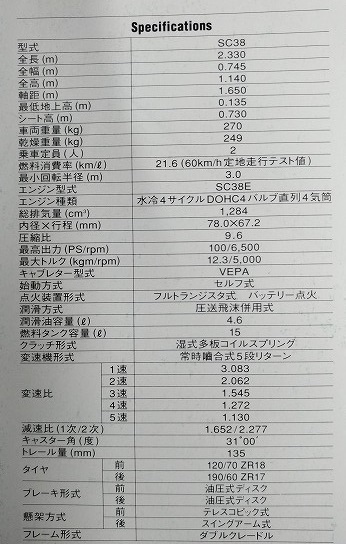 Specifications
型式 SC38
全長 (m) 2.330
全幅 (m) 0.745
全高 (m) 1.140
軸距 (m) 1.650
最低地上高 (m) 0.135
シート高 (m) 0.730
車両重量 (kg) 270
乾燥重量 (kg) 249
乗車定員 (人) 2
燃料消費率 (km/ℓ) 21.6 (60km/h 定地走行テスト値)
最小回転半径 (m) 3.0
エンジン型式 SC38E
エンジン種類 水冷4サイクルDOHC4バルブ直列4気筒
総排気量 (cm³) 1,284
内径×行程 (mm) 78.0×67.2
圧縮比 9.6
最高出力 (PS/rpm) 100/6,500
最大トルク (kgm/rpm) 12.3/5,000
キャブレター型式 VEPA
始動方式 セルフ式
点火装置形式 フルトランジスタ式 バッテリー点火
潤滑方式 圧送飛沫併用式
潤滑油容量 (ℓ) 4.6
燃料タンク容量 (ℓ) 15
クラッチ形式 湿式多板コイルスプリング
変速機形式 常時噛合式5段リターン
変速比 1速 3.083
2速 2.062
3速 1.545
4速 1.272
5速 1.130
減速比 (1次/2次) 1.652/2.277
キャスター角 (度) 31°00′
トレール量 (mm) 135
タイヤ 前 120/70 ZR18
後 190/60 ZR17
ブレーキ形式 前 油圧式ディスク
後 油圧式ディスク
懸架方式 前 テレスコピック式
後 スイングアーム式
フレーム形式 ダブルクレードル